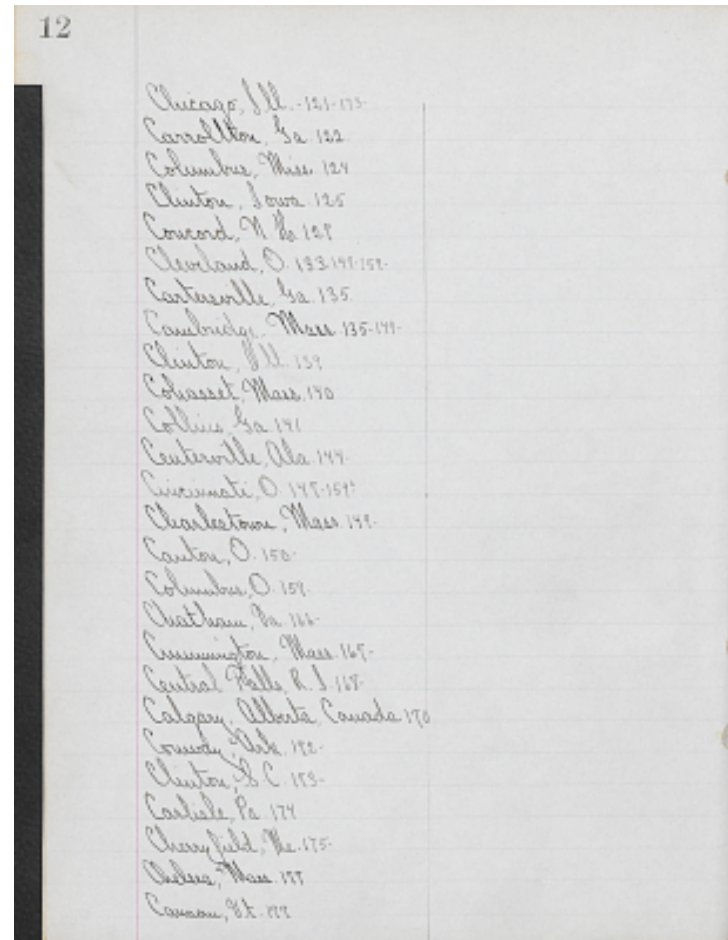 12
Chicago, Ill. -121-173-
Carrollton, Ga. 122.
Columbus, Miss. 124
Clinton, Iowa. 125
Concord, N.H. 128
Cleveland, O. 133.
Cartersville, Ga. 135.
Cambridge, Mass. 135-149-
Clinton, Ill. 139
Cohasset, Mass. 140
Collins, Ga. 141
Centerville, Ala. 144.
Cincinnati, O.
Charlestown, Mass. 149-
Canton, O. 150-
Columbus, O. 159.
Chatham, 166-
Cummington, Mass.
Central Falls, R.I. 168-
Calgary, Alberta, Canada 170
Ark. 172-
Clinton, S.C. 173-
Carlisle, Pa. 174
Cherryfield, Me. 175-
Chelsea, Mass. 177
Canaan, Vt. 177